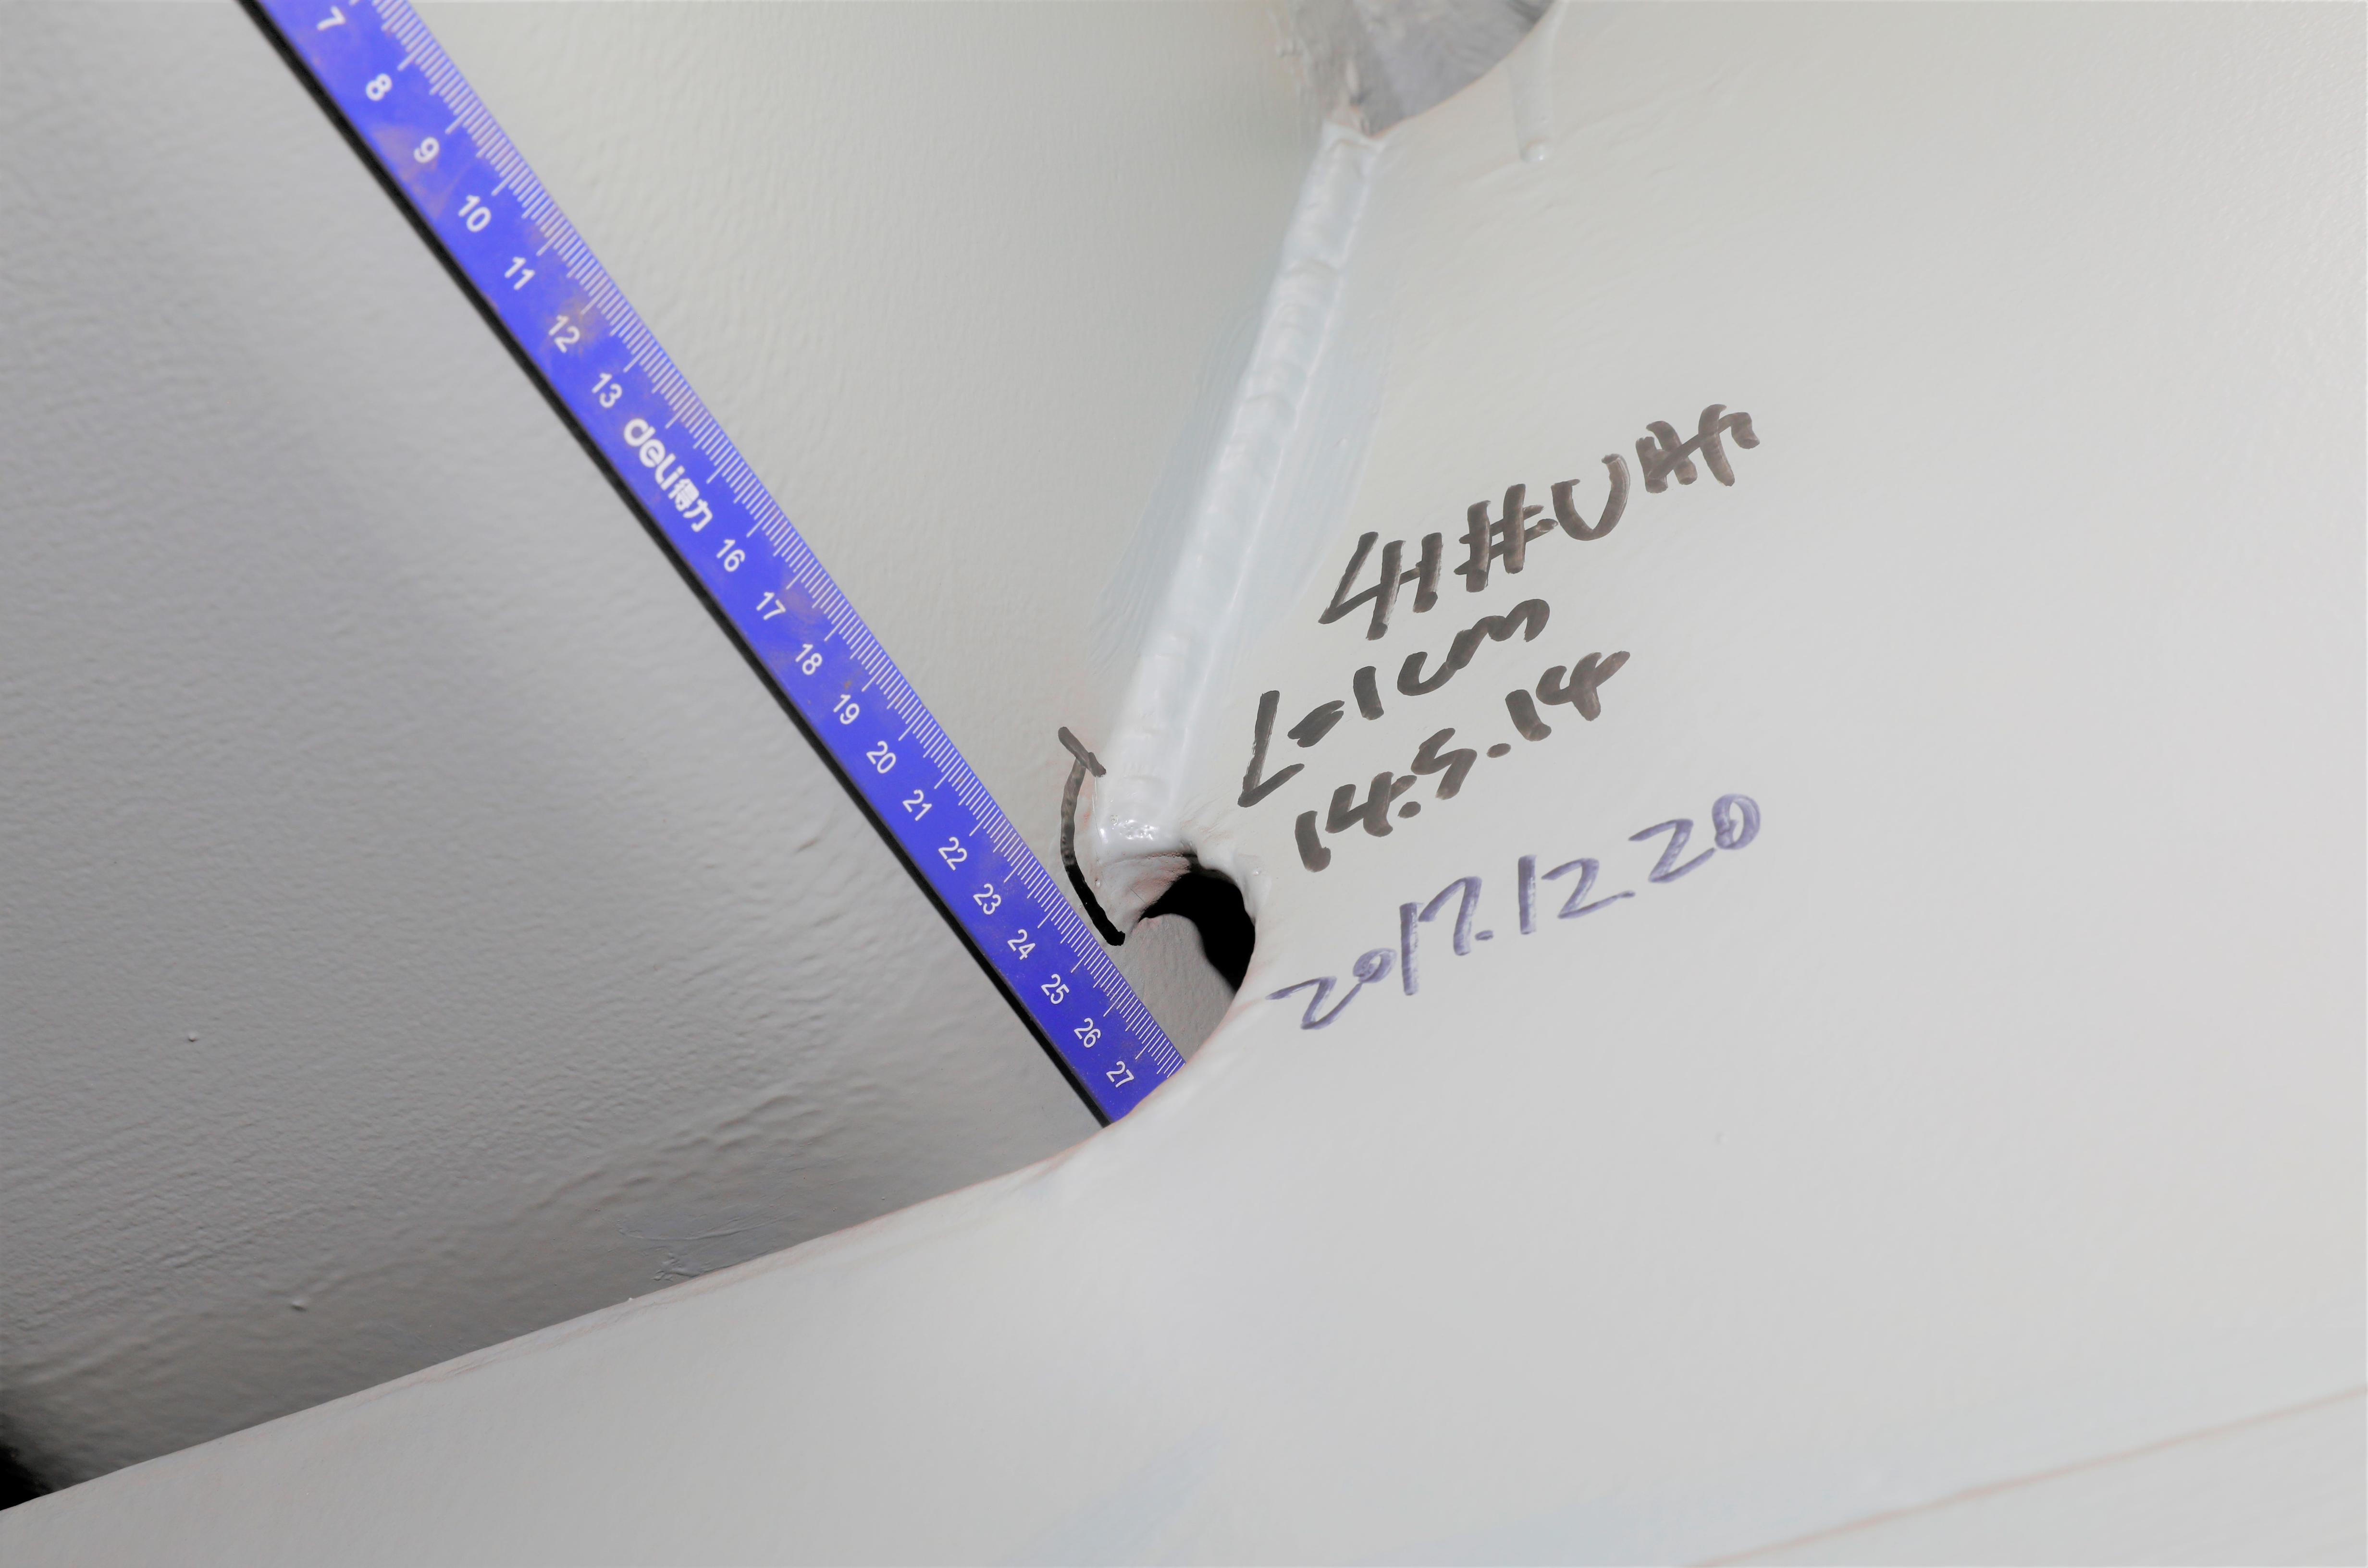 7 8 9 10 11 12 13 deli得力 16 17 18 19 20 21 22 23 24 25 26 27
41#U肋
L=1cm
14.5.14
2017.12.20